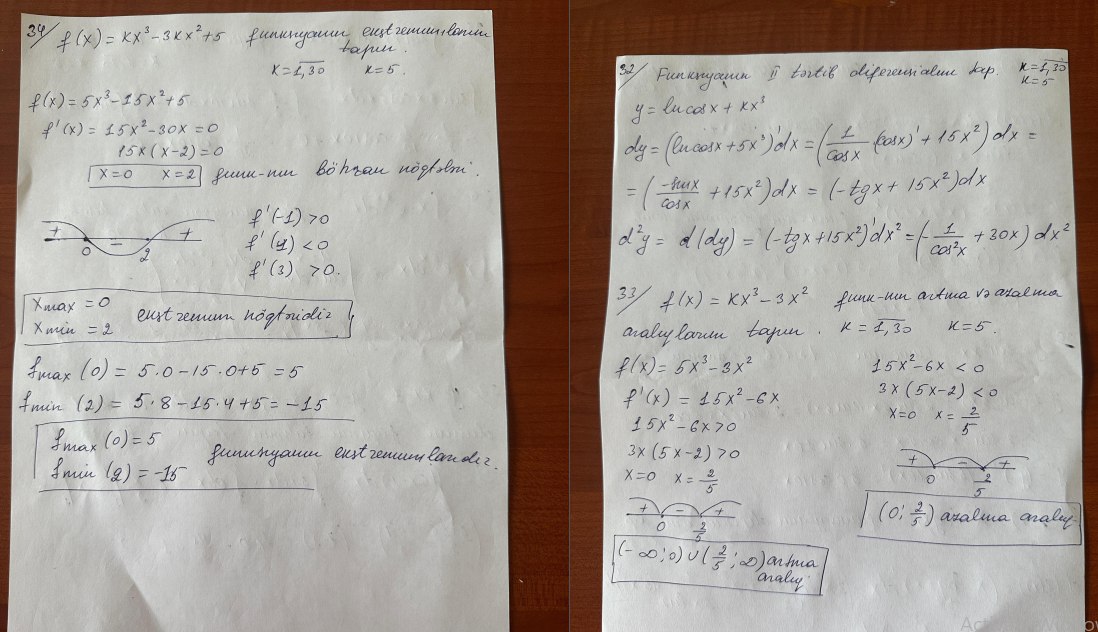 34/ f(x) = kx³ - 3kx² + 5 funksiyanın ekstremumlarını
tapın.
k = 1,30 k = 5.
f(x) = 5x³ - 15x² + 5
f'(x) = 15x² - 30x = 0
15x(x-2) = 0
x=0 x=2 funk-nın böhran nöqtələri.
+ 0 - 2 +
f'(-1) > 0
f'(1) < 0
f'(3) > 0.
xmax = 0
xmin = 2 ekstremum nöqtəsidir
fmax (0) = 5·0 - 15·0 + 5 = 5
fmin (2) = 5·8 - 15·4 + 5 = -15
fmax (0) = 5
fmin (2) = -15 funksiyanın ekstremumlarıdır.
32/ Funksiyanın II tərtib diferensialını tap. k = 1,30
k = 5
y = ln cosx + kx³
dy = (ln cosx + 5x³)'dx = (1/cosx (cosx)' + 15x²) dx =
= (-sinx/cosx + 15x²) dx = (-tgx + 15x²) dx
d²y = d(dy) = (-tgx + 15x²)'dx² = (-1/cos²x + 30x) dx²
33/ f(x) = kx³ - 3x² funk-nın artma və azalma
aralıqlarını tapın. k = 1,30 k = 5.
f(x) = 5x³ - 3x²
f'(x) = 15x² - 6x
15x² - 6x > 0
3x (5x-2) > 0
x=0 x = 2/5
+ 0 - 2/5 +
(-∞; 0) ∪ (2/5; ∞) artma
aralıq
15x² - 6x < 0
3x (5x-2) < 0
x=0 x = 2/5
+ 0 - 2/5 +
(0; 2/5) azalma aralıq.